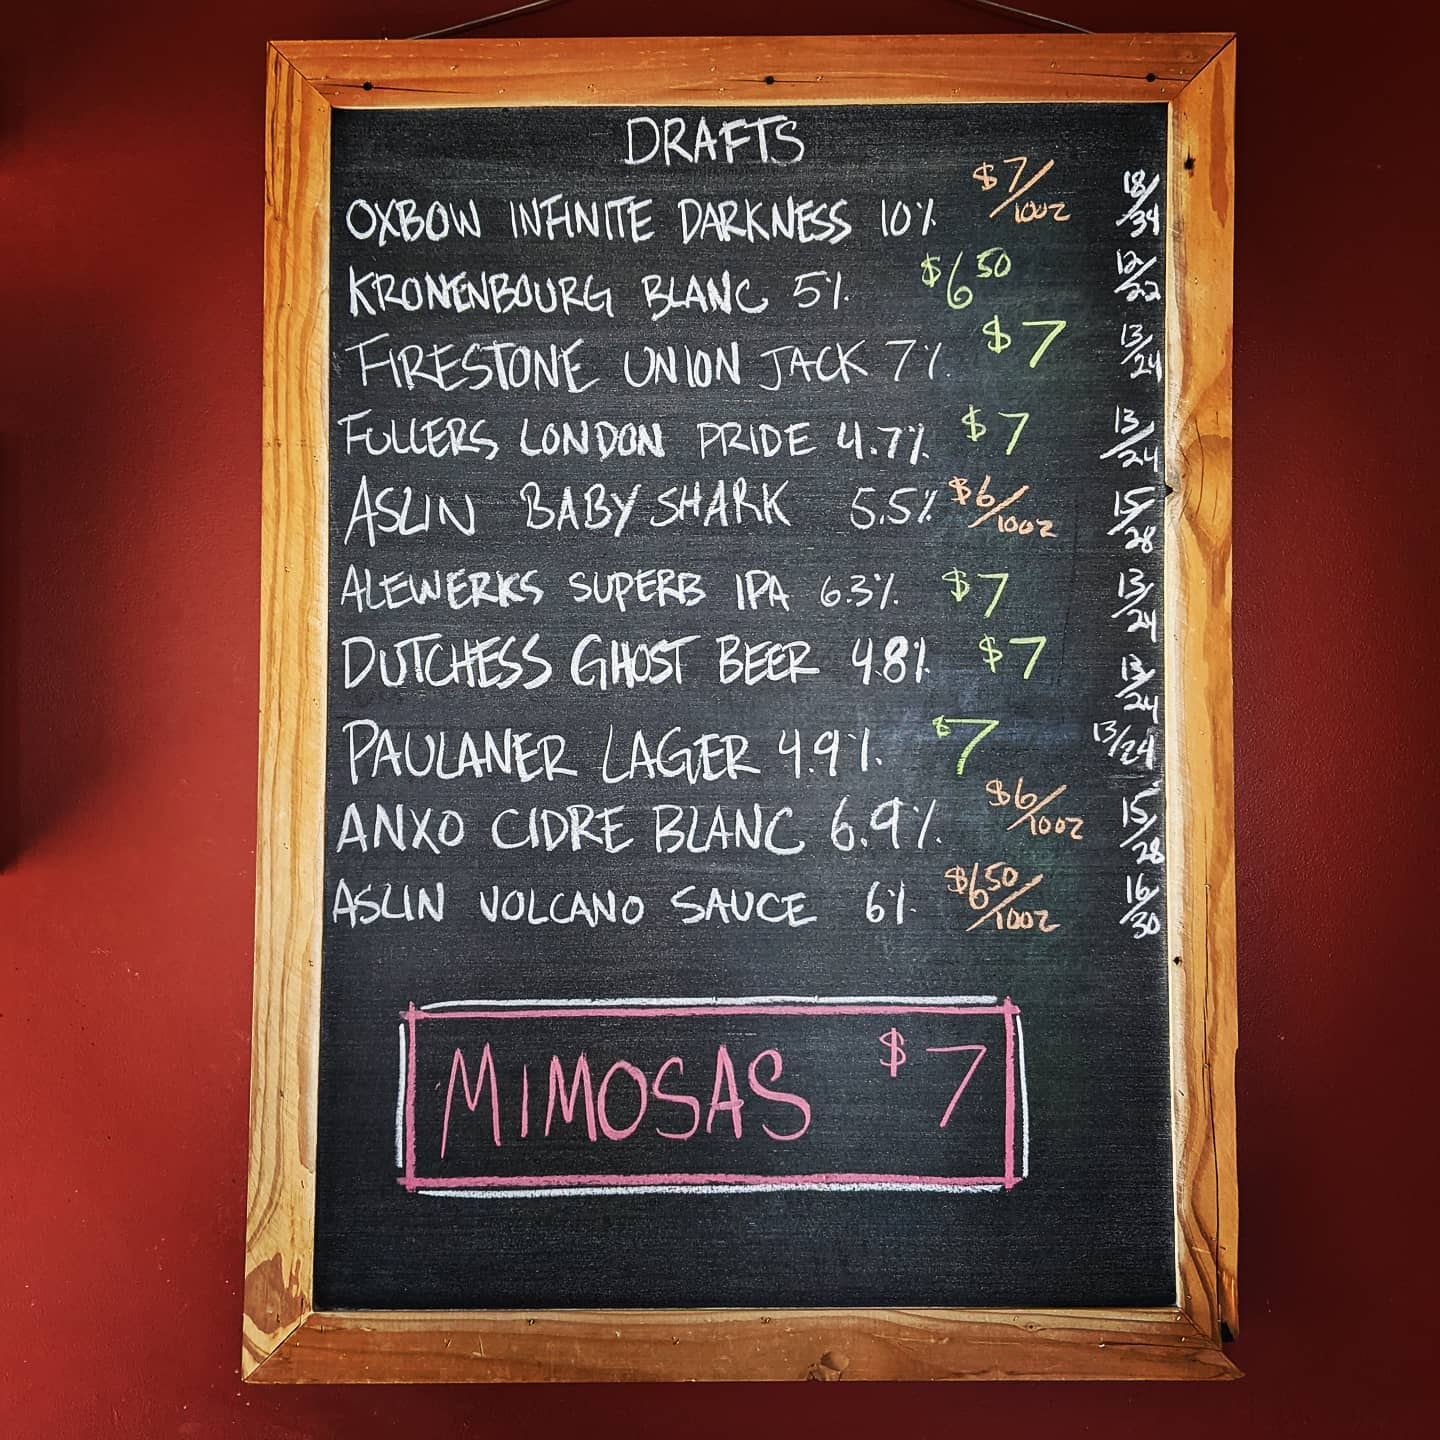 DRAFTS
OXBOW INFINITE DARKNESS 10% $7/10OZ 18/34
KRONENBOURG BLANC 5% $6.50 12/22
FIRESTONE UNION JACK 7% $7 13/24
FULLERS LONDON PRIDE 4.7% $7 13/24
ASLIN BABY SHARK 5.5% $6/10OZ 15/28
ALEWERKS SUPERB IPA 6.3% $7 13/24
DUTCHESS GHOST BEER 4.8% $7 13/24
PAULANER LAGER 4.9% $7 13/24
ANXO CIDRE BLANC 6.9% $6/10OZ 15/28
ASLIN VOLCANO SAUCE 6% $6.50/10OZ 16/30
MIMOSAS $7